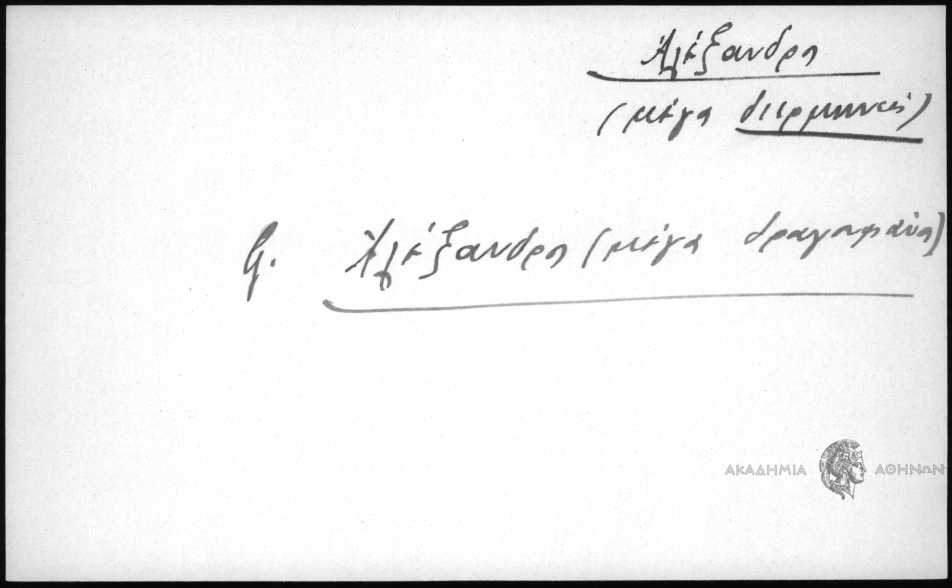 Ἀλέξανδρο
(μέγα διερμηνεύς)
β. Ἀλέξανδρο (μέγα δραγουμάνο)
ΑΚΑΔΗΜΙΑ ΑΘΗΝΩΝ